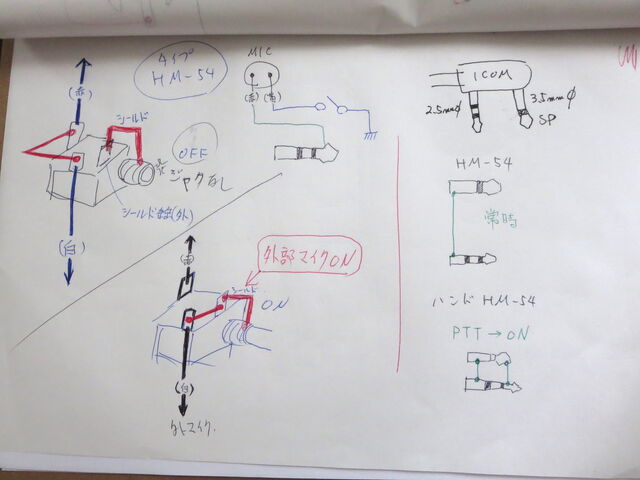 タイプ
HM-54
(赤)
シールド
OFF
ジャクなし
シールド線(外)
(白)
MIC
(赤) (白)
外部マイクON
シールド
ON
(白)
外マイク.
ICOM
2.5mmφ
3.5mmφ
SP
HM-54
常時
ハンドHM-54
PTT→ON